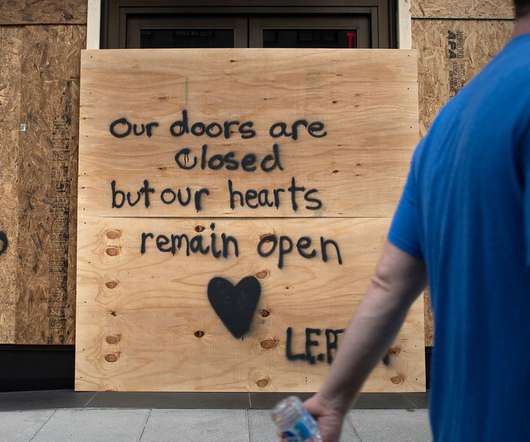 our doors are
closed
but our hearts
remain open
APA